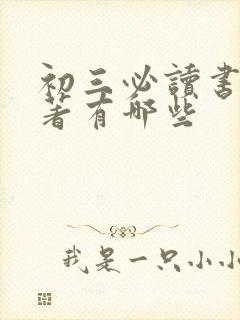 初三必讀書
著有哪些
我是一只小小